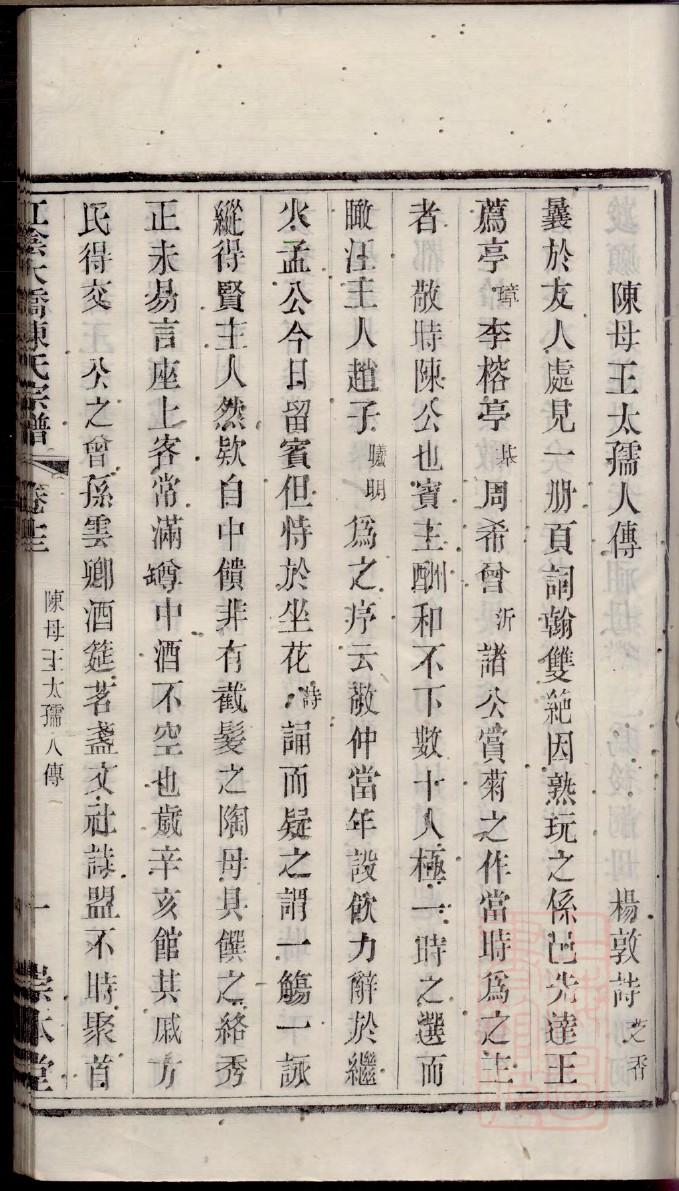 陳母王太孺人傳 楊敦詩 芝香
曩於友人處見一册頁詞翰雙絶因熟玩之係邑先達王
薦亭 李榕亭 周希曾 沂 諸公賞菊之作當時爲之主
者 敬時陳公也賓主酬和不下數十人極一時之選而
瞰江主人趙子 曦明 爲之序云敬仲當年設飲力辭於繼
火孟公今日留賓但恃於坐花 詩 誦而疑之謂一觴一詠
縱得賢主人然欵自中饋非有截髮之陶母具饌之絡秀
正未易言座上客常滿罇中酒不空也歲辛亥館其戚方
民得交 公之曾孫雲卿酒筵茗盞文社詩盟不時聚首
江陰大橋陳氏宗譜 卷 陳母王太孺人傳 一 崇本堂